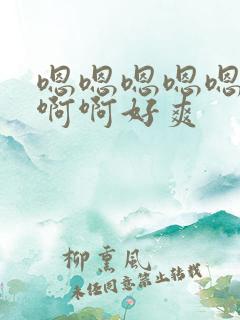 嗯嗯嗯嗯嗯
啊啊好爽
柳熏风
未经同意禁止转载